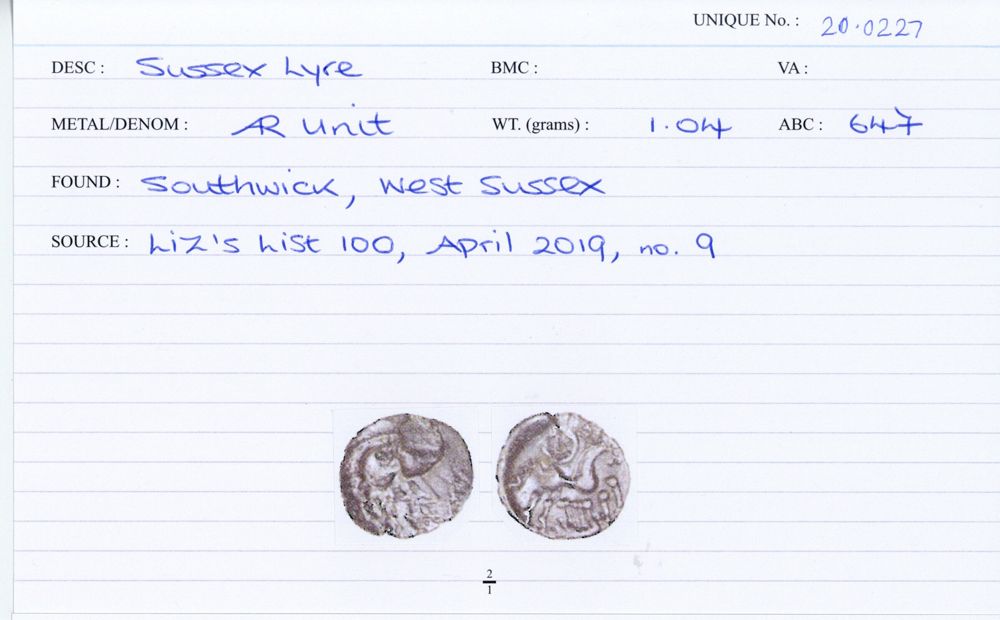 UNIQUE No. : 20.0227
DESC : Sussex Lyre BMC : VA :
METAL/DENOM : AR Unit WT. (grams) : 1.04 ABC : 647
FOUND : Southwick, West Sussex
SOURCE : Liz's List 100, April 2019, no. 9
2
1